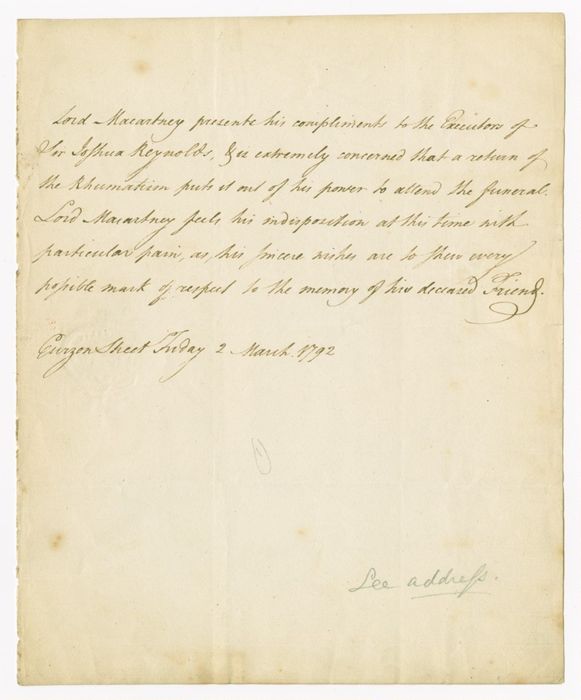 Lord Macartney presents his compliments to the Executors of
Sir Joshua Reynolds, & is extremely concerned that a return of
the Rhumatism puts it out of his power to attend the funeral.
Lord Macartney feels his indisposition at this time with
particular pain, as, his sincere wishes are to shew every
possible mark of respect to the memory of his deceased Friend.
Curzon Street Friday 2 March. 1792
See address.